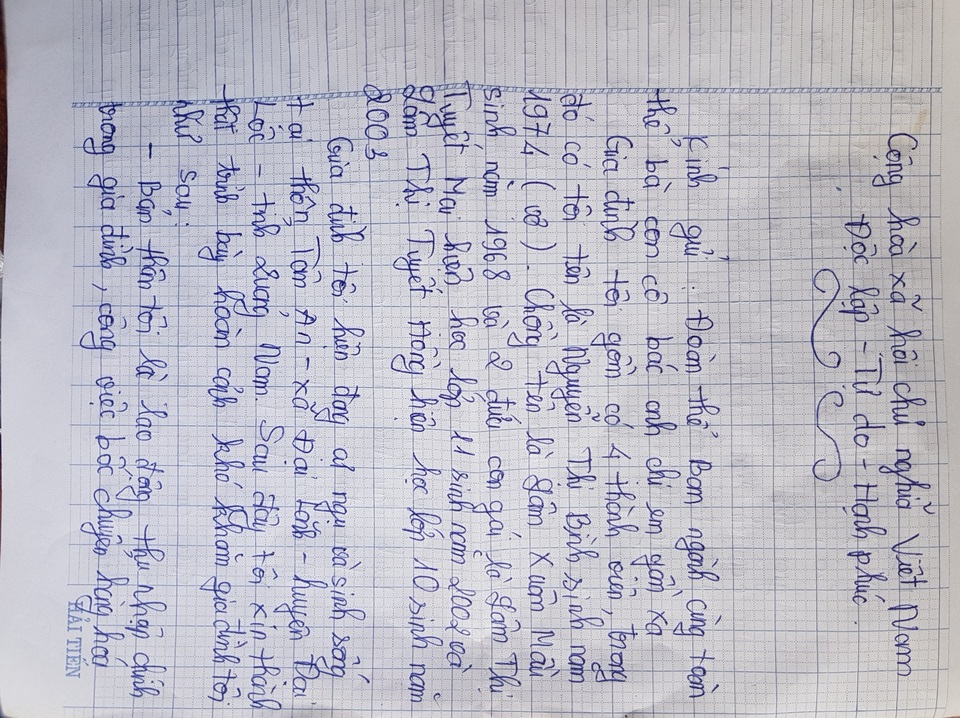 Cộng hòa xã hội chủ nghĩa Việt Nam
Độc lập - Tự do - Hạnh phúc.
Kính gửi: Đoàn thể Ban ngành cùng toàn
thể bà con cô bác anh chị em gần xa
Gia đình tôi gồm có 4 thành viên, trong
đó có tôi tên là Nguyễn Thị Bình sinh năm
1974 (vợ). Chồng tên là Xuân Mãi
sinh năm 1968 và 2 đứa con gái là Thị
Tuyết Mai hiện học lớp 11 sinh năm 2002 và
Thị Tuyết Hồng hiện học lớp 10 sinh năm
2003
Gia đình tôi hiện đang cư ngụ và sinh sống
tại thôn Tân An - xã Đại Lãnh - huyện Đại
Lộc - tỉnh Quảng Nam. Sau đây tôi xin thành
thật trình bày hoàn cảnh khó khăn gia đình tôi
như sau:
- Bản thân tôi là lao động thu nhập chính
trong gia đình, công việc bốc chuyển hàng hóa
HẢI TIẾN